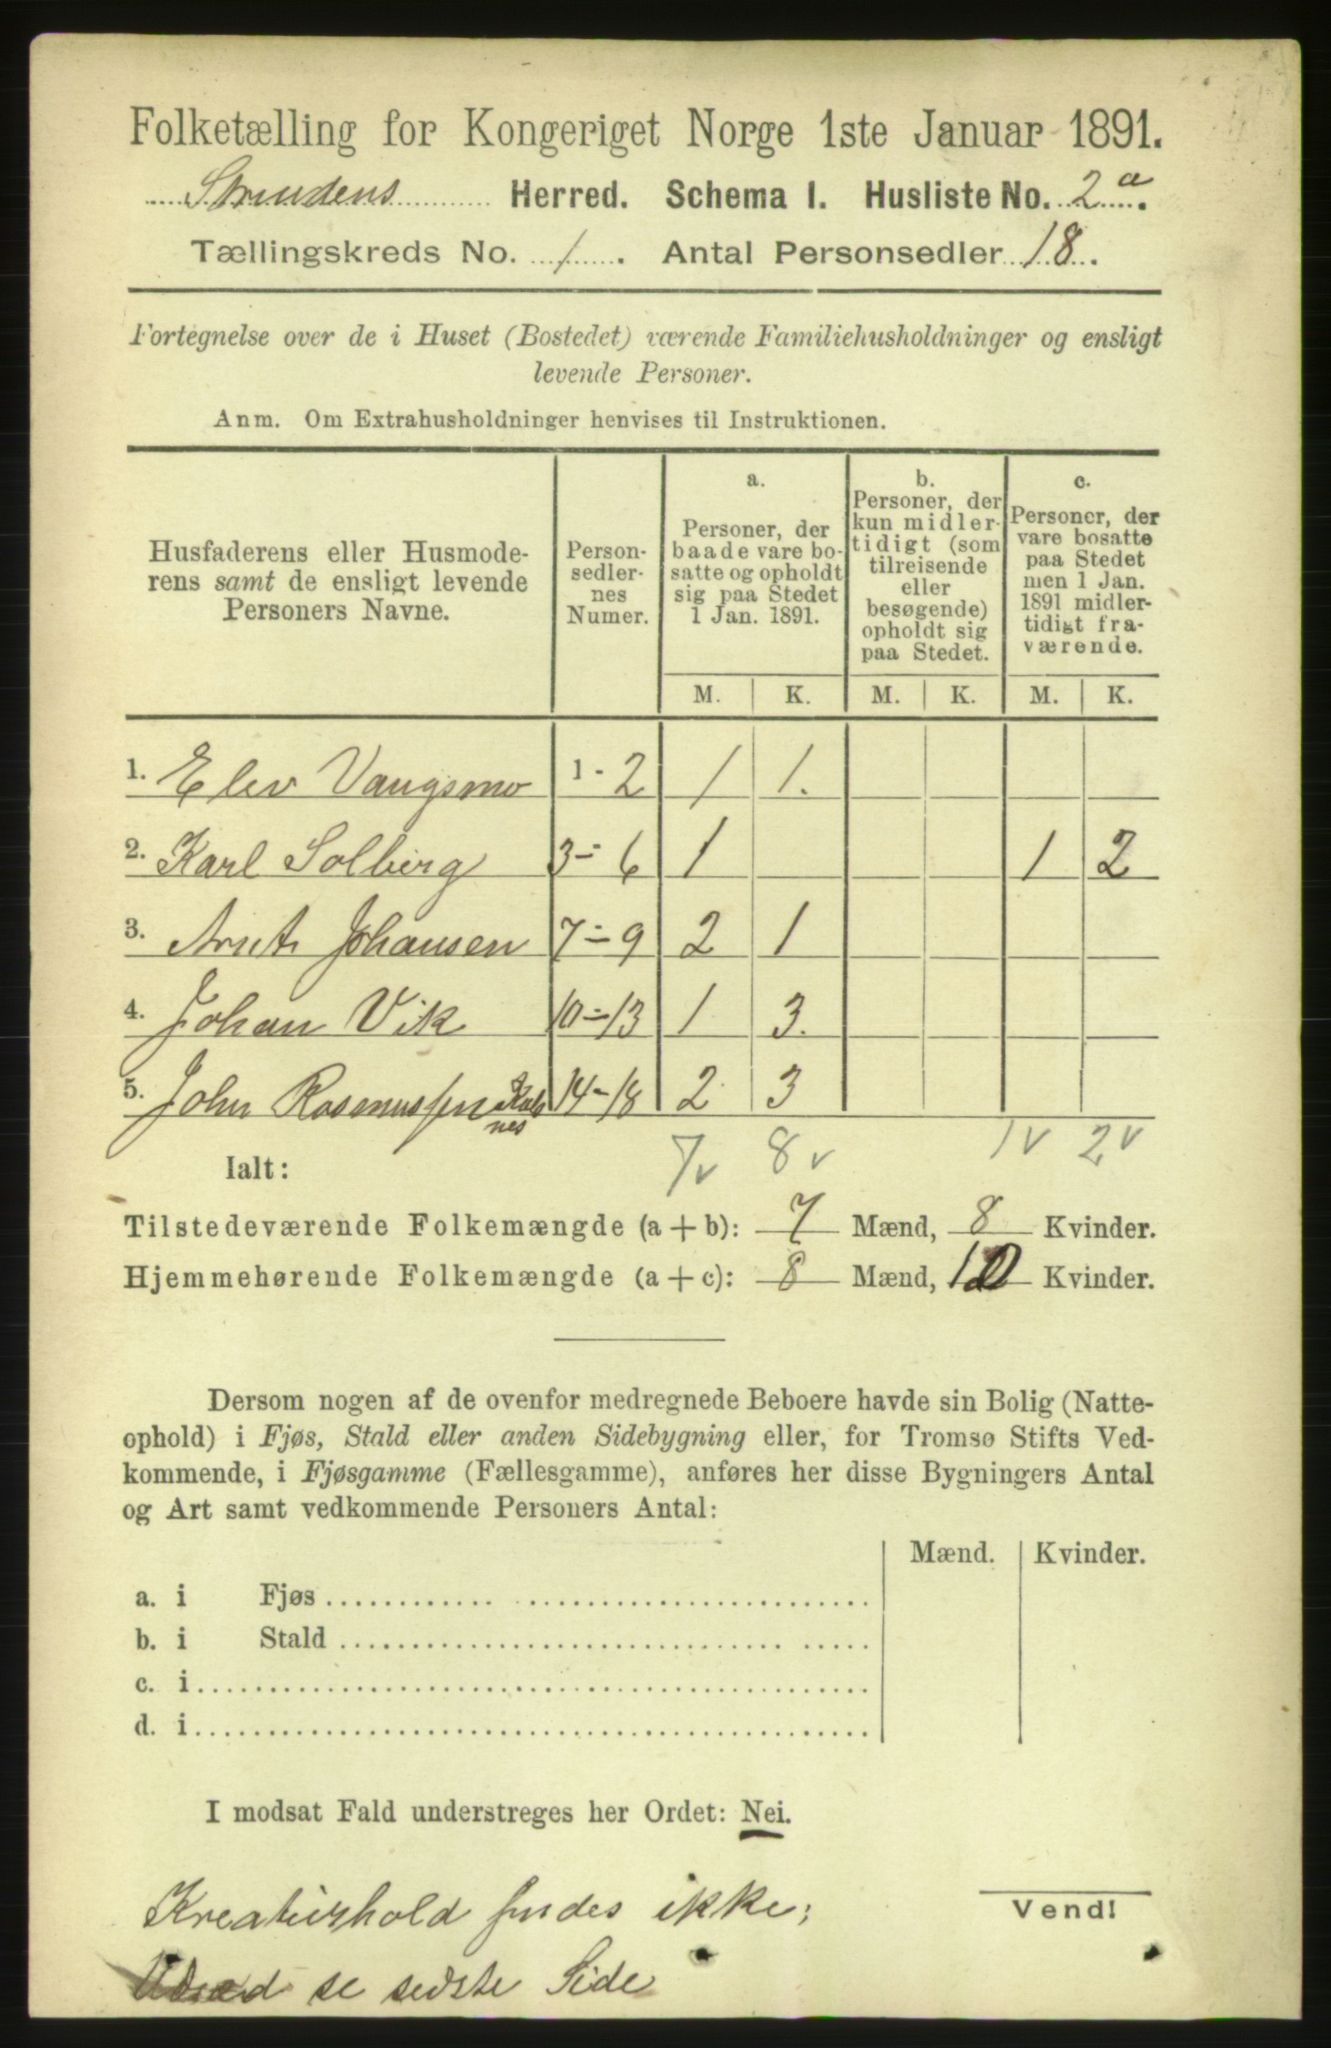 Folketælling for Kongeriget Norge 1ste Januar 1891.
Strindens Herred. Schema I. Husliste No. 2 a.
Tællingskreds No. 1. Antal Personsedler 18.
Fortegnelse over de i Huset (Bostedet) værende Familiehusholdninger og ensligt
levende Personer.
Anm. Om Extrahusholdninger henvises til Instruktionen.
Husfaderens eller Husmode-
rens samt de ensligt levende
Personers Navne.
Person-
sedler-
nes
Numer.
a.
Personer, der
baade vare bo-
satte og opholdt
sig paa Stedet
1 Jan. 1891.
b.
Personer, der
kun midler-
tidigt (som
tilreisende
eller
besøgende)
opholdt sig
paa Stedet.
c.
Personer, der
vare bosatte
paa Stedet
men 1 Jan.
1891 midler-
tidigt fra-
værende.
M. K. M. K. M. K.
1. Elev Vangsmo 1 - 2 1 1.
2. Karl Solberg 3 - 6 1 1 2
3. Arnt Johansen 7 - 9 2 1
4. Johan Vik 10 - 13 1 3.
5. John Rasmussen 14 - 18 2 3
Ialt: 7 v 8 v 1 v 2 v
Tilstedeværende Folkemængde (a + b): 7 Mænd, 8 Kvinder.
Hjemmehørende Folkemængde (a + c): 8 Mænd, 10 Kvinder.
Dersom nogen af de ovenfor medregnede Beboere havde sin Bolig (Natte-
ophold) i Fjøs, Stald eller anden Sidebygning eller, for Tromsø Stifts Ved-
kommende, i Fjøsgamme (Fællesgamme), anføres her disse Bygningers Antal
og Art samt vedkommende Personers Antal:
Mænd. Kvinder.
a. i Fjøs
b. i Stald
c. i
d. i
I modsat Fald understreges her Ordet: Nei.
Kreaturhold findes ikke;
Vend!
se sidste Side